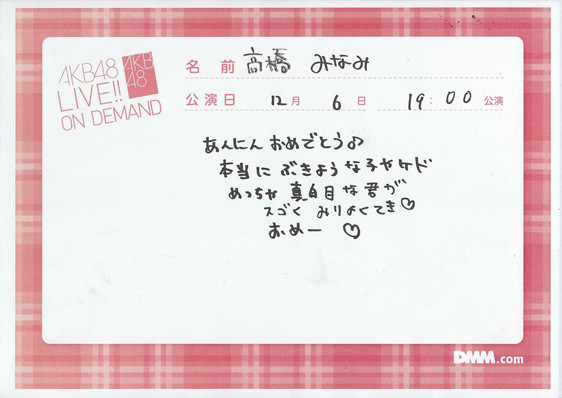 AKB48
LIVE!!
ON DEMAND
AKB
48
名 前 高橋 みなみ
公演日 12月 6日 19:00 公演
あんにん おめでとう♪
本当に ぶきような子ヤケド
めっちゃ 真白目な君が
スゴく みりょくてき♡
おめー ♡
DMM.com